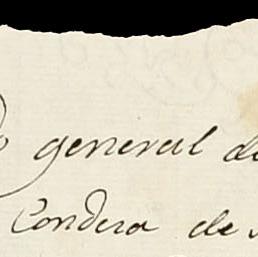 general de
Condera de